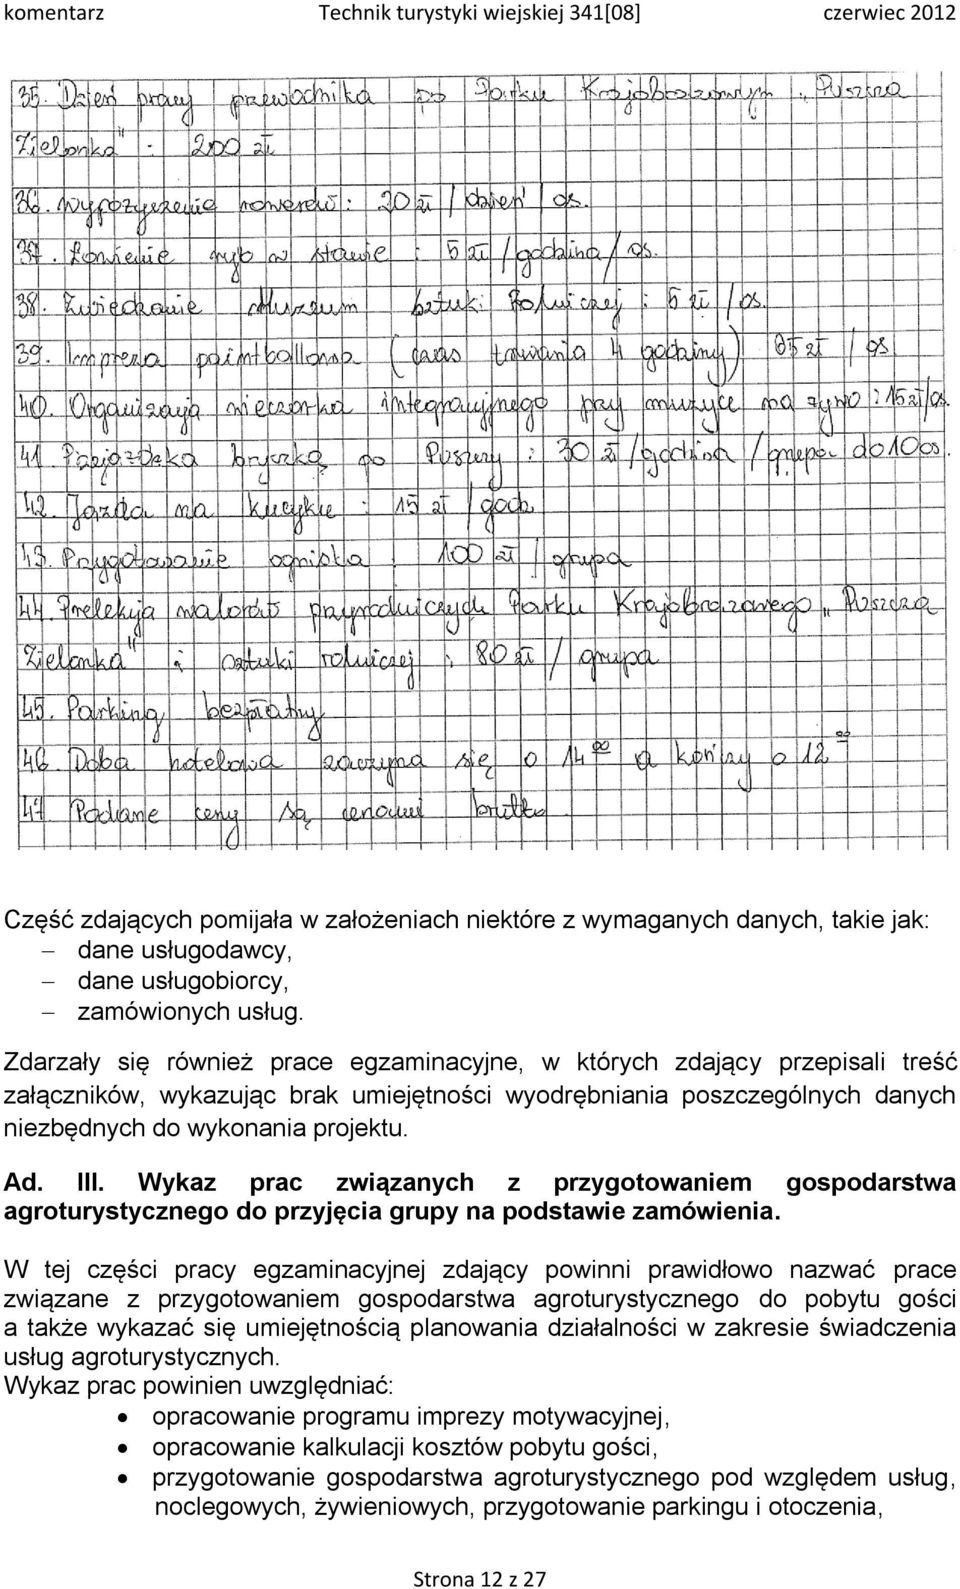 komentarz Technik turystyki wiejskiej 341[08] czerwiec 2012
35. Dzień pracy przewodnika po Parku Krajobrazowym „Puszcza
Zielonka” : 200 zł
36. Wypożyczenie rowerów : 20 zł / dzień / os.
37. Łowienie ryb w stawie : 5 zł / godzina / os.
38. Zwiedzanie Muzeum Sztuki Rolniczej : 5 zł / os.
39. Impreza paintballowa ( czas trwania 4 godziny ) 85 zł / os.
40. Organizacja wieczorka integracyjnego przy muzyce na żywo : 15zł/os.
41. Przejażdżka bryczką po Puszczy : 30 zł / godzina / grupa do 10 os.
42. Jazda na kucyku : 15 zł / godz.
43. Przygotowanie ogniska : 100 zł / grupa
44. Prelekcja walorów przyrodniczych Parku Krajobrazowego „Puszcza
Zielonka” i sztuki rolniczej : 80 zł / grupa
45. Parking bezpłatny
46. Doba hotelowa zaczyna się o 14 00 a kończy o 12 00
47. Podane ceny są cenami brutto
Część zdających pomijała w założeniach niektóre z wymaganych danych, takie jak:
− dane usługodawcy,
− dane usługobiorcy,
− zamówionych usług.
Zdarzały się również prace egzaminacyjne, w których zdający przepisali treść
załączników, wykazując brak umiejętności wyodrębniania poszczególnych danych
niezbędnych do wykonania projektu.
Ad. III. Wykaz prac związanych z przygotowaniem gospodarstwa
agroturystycznego do przyjęcia grupy na podstawie zamówienia.
W tej części pracy egzaminacyjnej zdający powinni prawidłowo nazwać prace
związane z przygotowaniem gospodarstwa agroturystycznego do pobytu gości
a także wykazać się umiejętnością planowania działalności w zakresie świadczenia
usług agroturystycznych.
Wykaz prac powinien uwzględniać:
• opracowanie programu imprezy motywacyjnej,
• opracowanie kalkulacji kosztów pobytu gości,
• przygotowanie gospodarstwa agroturystycznego pod względem usług,
noclegowych, żywieniowych, przygotowanie parkingu i otoczenia,
Strona 12 z 27